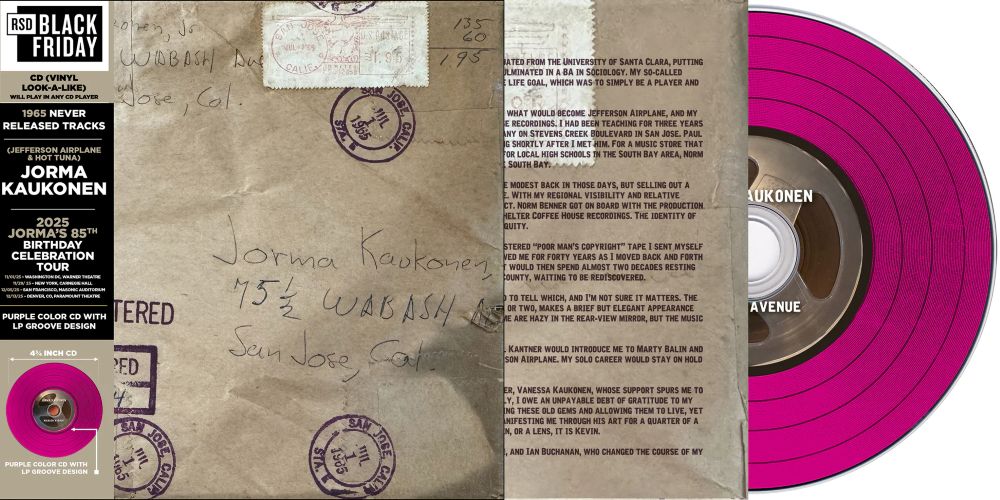 RSD BLACK
FRIDAY
CD (VINYL
LOOK-A-LIKE)
WILL PLAY IN ANY CD PLAYER
1965 NEVER
RELEASED TRACKS
(JEFFERSON AIRPLANE
& HOT TUNA)
JORMA
KAUKONEN
2025
JORMA'S 85TH
BIRTHDAY
CELEBRATION
TOUR
11/01/25 - WASHINGTON DC, WARNER THEATRE
11/29/25 - NEW YORK, CARNEGIE HALL
12/05/25 - SAN FRANCISCO, MASONIC AUDITORIUM
12/13/25 - DENVER, CO, PARAMOUNT THEATRE
PURPLE COLOR CD WITH
LP GROOVE DESIGN
4¾ INCH CD
PURPLE COLOR CD WITH
LP GROOVE DESIGN
WABASH
Jose, Cal.
135
60
1.95
SAN JOSE, CALIF.
JUL
1
1965
STA. B
Jorma Kaukonen
75 1/2 WABASH
San Jose, Cal.
TERED
SAN JOSE, CALIF.
JUL
1
1965
SAN JOSE, CALIF.
JUL
1
1965
STA. B
ATED FROM THE UNIVERSITY OF SANTA CLARA, PUTTING
ULMINATED IN A BA IN SOCIOLOGY. MY SO-CALLED
LIFE GOAL, WHICH WAS TO SIMPLY BE A PLAYER AND
WHAT WOULD BECOME JEFFERSON AIRPLANE, AND MY
RECORDINGS. I HAD BEEN TEACHING FOR THREE YEARS
ANY ON STEVENS CREEK BOULEVARD IN SAN JOSE. PAUL
G SHORTLY AFTER I MET HIM. FOR A MUSIC STORE THAT
FOR LOCAL HIGH SCHOOLS IN THE SOUTH BAY AREA, NORM
SOUTH BAY.
MODEST BACK IN THOSE DAYS, BUT SELLING OUT A
. WITH MY REGIONAL VISIBILITY AND RELATIVE
CT. NORM BENNER GOT ON BOARD WITH THE PRODUCTION
HELTER COFFEE HOUSE RECORDINGS. THE IDENTITY OF
QUITY.
STERED "POOR MAN'S COPYRIGHT" TAPE I SENT MYSELF
WED ME FOR FORTY YEARS AS I MOVED BACK AND FORTH
T WOULD THEN SPEND ALMOST TWO DECADES RESTING
COUNTY, WAITING TO BE REDISCOVERED.
TO TELL WHICH, AND I'M NOT SURE IT MATTERS. THE
OR TWO, MAKES A BRIEF BUT ELEGANT APPEARANCE
ME ARE HAZY IN THE REAR-VIEW MIRROR, BUT THE MUSIC
KANTNER WOULD INTRODUCE ME TO MARTY BALIN AND
SON AIRPLANE. MY SOLO CAREER WOULD STAY ON HOLD
ER, VANESSA KAUKONEN, WHOSE SUPPORT SPURS ME TO
LY, I OWE AN UNPAYABLE DEBT OF GRATITUDE TO MY
ING THESE OLD GEMS AND ALLOWING THEM TO LIVE, YET
ANIFESTING ME THROUGH HIS ART FOR A QUARTER OF A
N, OR A LENS, IT IS KEVIN.
, AND IAN BUCHANAN, WHO CHANGED THE COURSE OF MY
AUKONEN
AVENUE